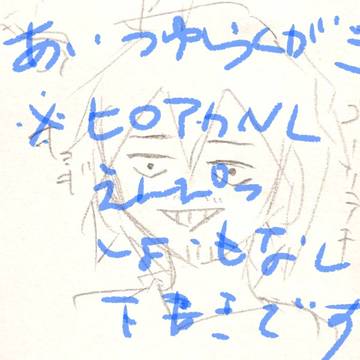 あいつゆらくがき
※ヒロアカNL
えんぴつ
もなし
下書きです